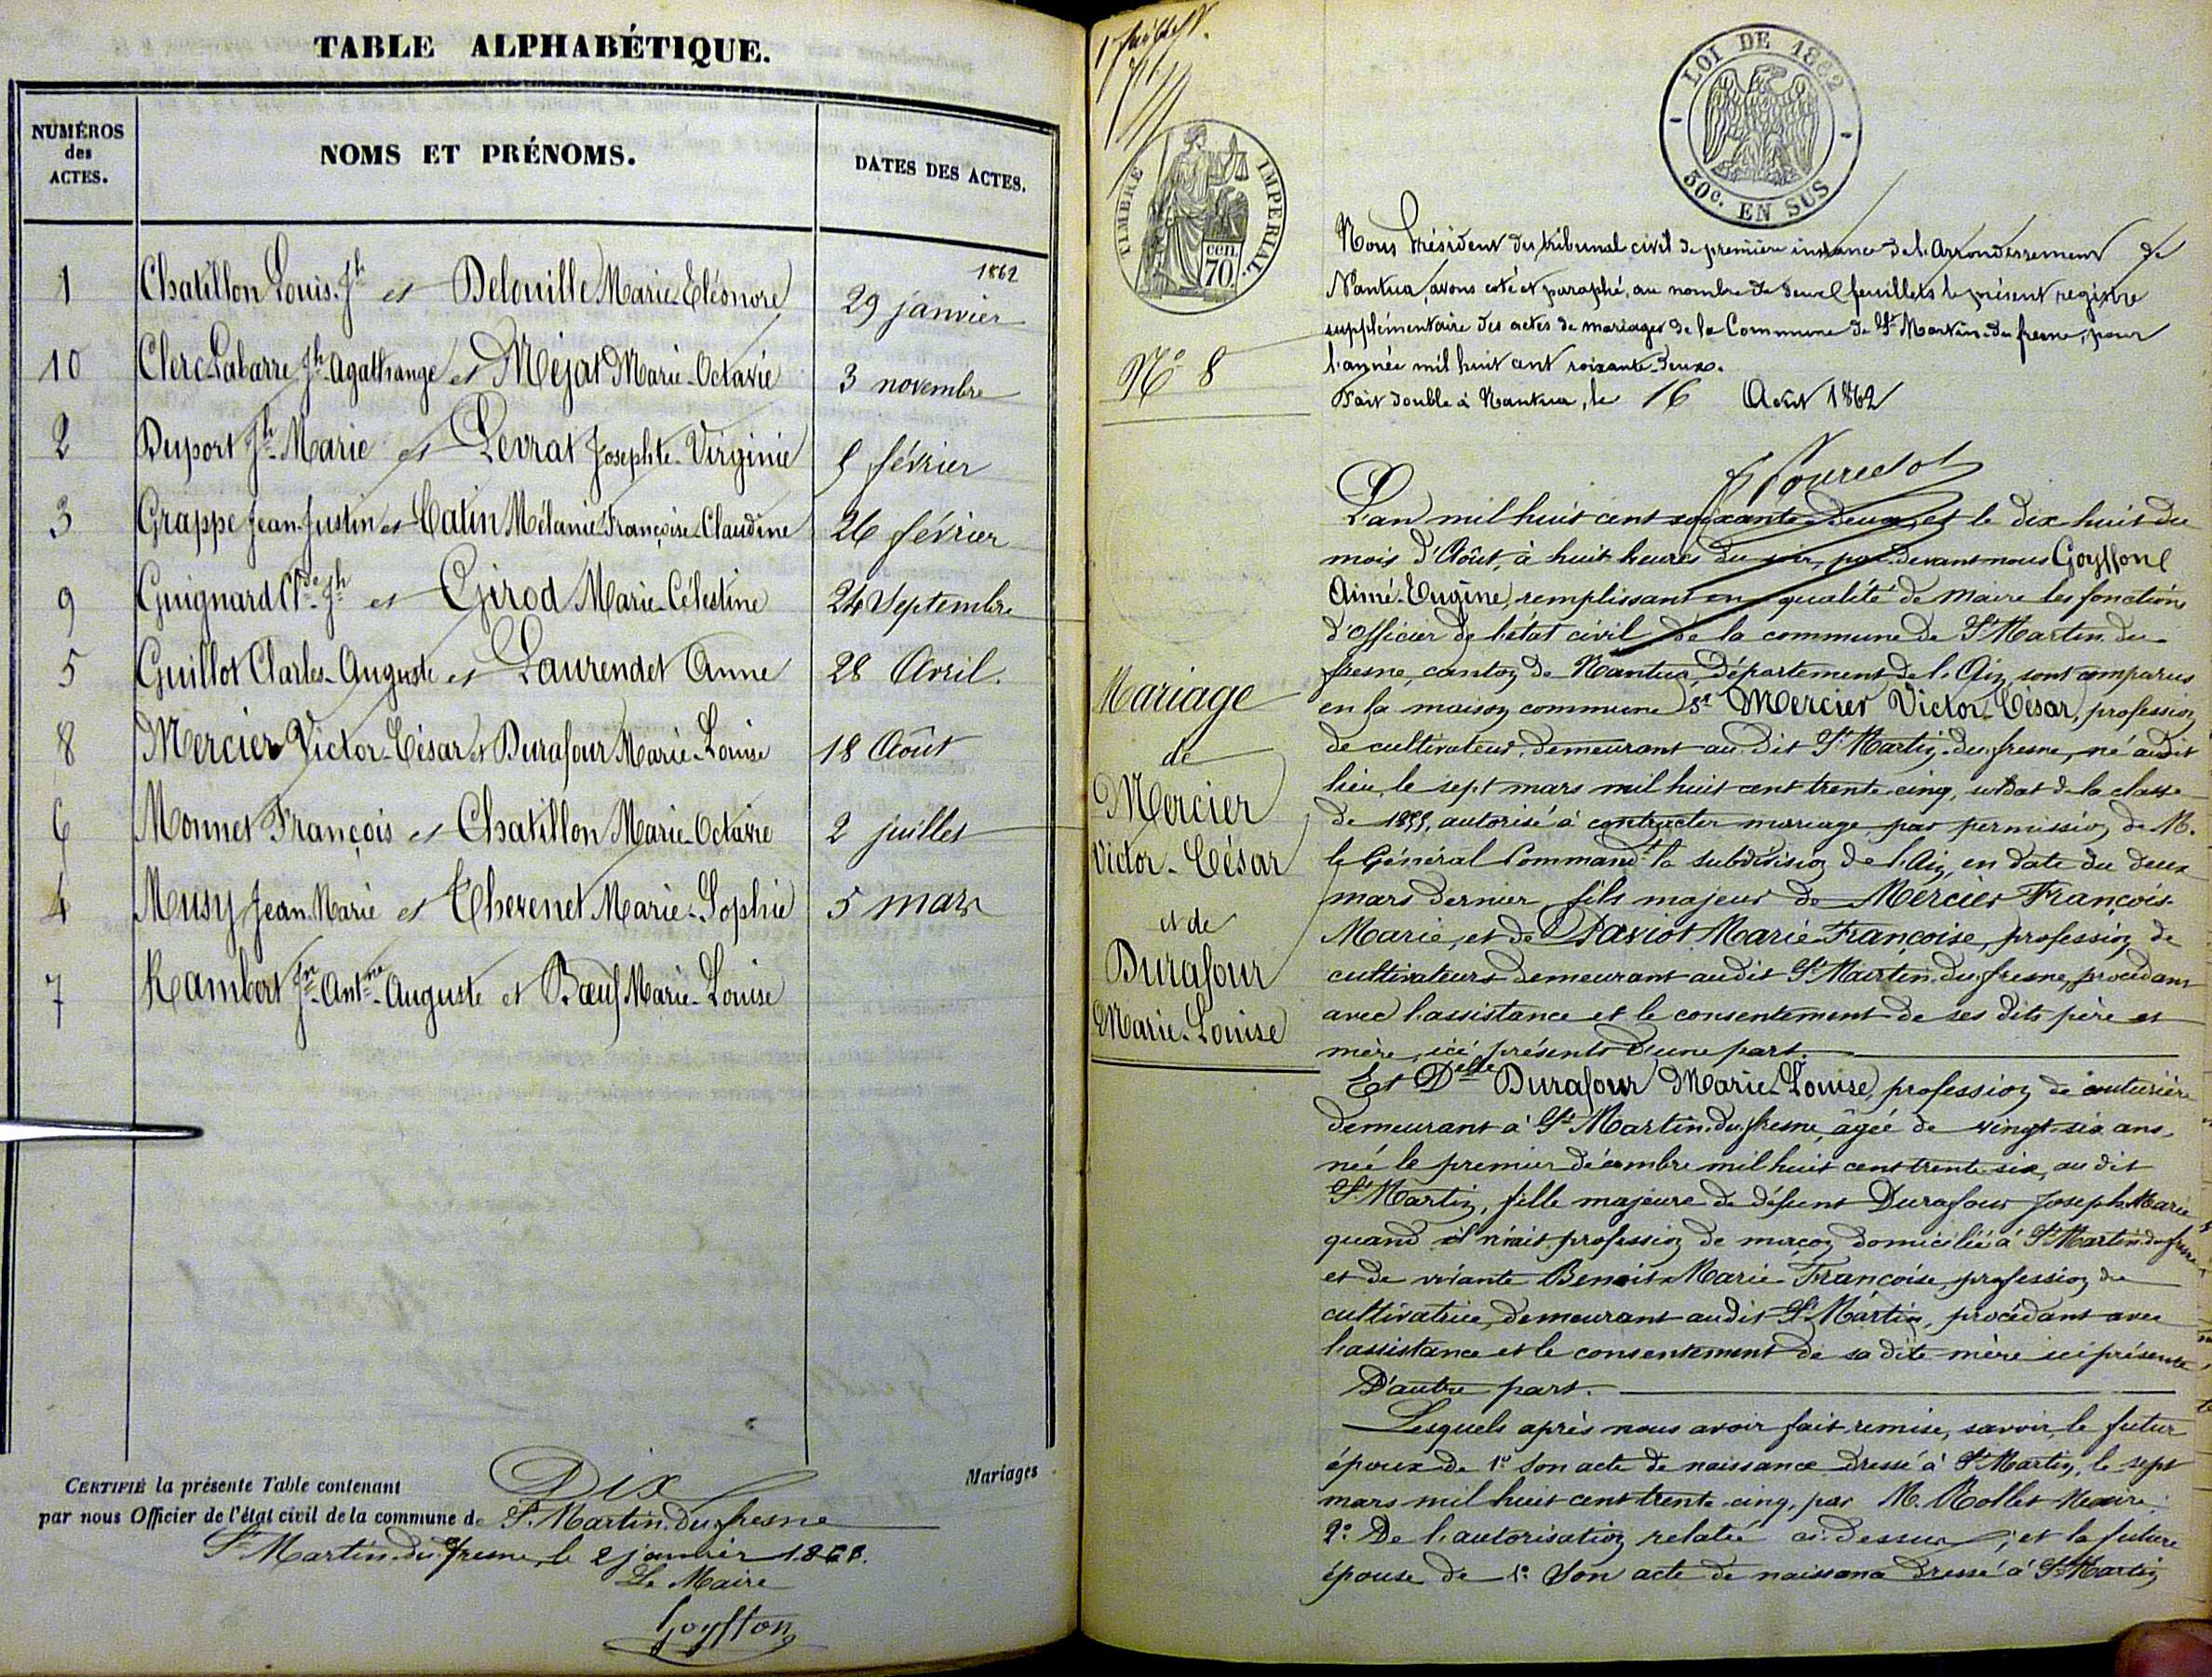 TABLE ALPHABÉTIQUE.
NUMÉROS des ACTES.
NOMS ET PRÉNOMS.
DATES DES ACTES.
1862
1 Chatillon Louis Jh et Delouille Marie-Eléonore 29 janvier
10 Clerc Labarre Jh-Agathange et Méjat Marie-Octavie 3 novembre
2 Duport Jh-Marie et Levrat Josephte-Virginie 5 février
3 Grappe Jean-Justin et Catin Mélanie Françoise-Claudine 26 février
9 Guignard Cde-Jh et Girod Marie-Célestine 24 Septembre
5 Guillot Charles-Auguste et Laurendet Anne 28 Avril.
8 Mercier Victor-César et Durafour Marie-Louise 18 Août
6 Monnet François et Chatillon Marie-Octavie 2 juillet
4 Musy Jean-Marie et Thevenet Marie-Sophie 5 mars
7 Rambert Jn-Antne-Auguste et Bœuf Marie-Louise
CERTIFIÉ la présente Table contenant Dix Mariages
par nous Officier de l'état civil de la commune de St Martin-du-fresne
St Martin-du-fresne, le 2 janvier 1863.
Le Maire
Goyffon
TIMBRE IMPERIAL.
cen. 70.
LOI DE 1862
50c. EN SUS
Nous Président du tribunal civil de première instance de l'Arrondissement de
Nantua, avons coté et paraphé, au nombre de deux feuillets le présent registre
supplémentaire des actes de mariages de la Commune de St Martin-du-fresne, pour
l'année mil huit cent soixante-deux.
Fait double à Nantua, le 16 Août 1862
No 8
Mariage
de
Mercier
Victor-César
et de
Durafour
Marie-Louise
L'an mil huit cent soixante-deux, et le dix huit du
mois d'Août, à huit heures du soir, par devant nous Goyffon
Aimé-Eugène, remplissant en qualité de maire les fonctions
d'Officier de l'état civil de la commune de St Martin-du-
fresne, canton de Nantua, Département de l'Ain, sont comparus
en la maison commune Sr Mercier Victor-César, profession
de cultivateur, demeurant au dit St Martin-du-fresne, né audit
lieu, le sept mars mil huit cent trente cinq, soldat de la classe
de 1855, autorisé à contracter mariage par permission de M.
le Général Commandt la subdivision de l'Ain, en date du deux
mars dernier, fils majeur de Mercier François-
Marie, et de Paviot Marie-Françoise, profession de
cultivateurs demeurant audit St Martin-du-fresne, procédant
avec l'assistance et le consentement de ses dits père et
mère, ici présents d'une part.
Et Delle Durafour Marie-Louise, profession de couturière
demeurant à St Martin-du-fresne, âgée de vingt-six ans,
née le premier décembre mil huit cent trente six, au dit
St Martin, fille majeure de défunt Durafour Joseph-Marie
quand il vivait profession de maçon domicilié à St Martin-du-fresne
et de vivante Benoit Marie-Françoise, profession de
cultivatrice, demeurant audit St Martin, procédant avec
l'assistance et le consentement de sa dite mère ici présente,
D'autre part.
Lesquels après nous avoir fait remise, savoir, le futur
époux de 1o Son acte de naissance dressé à St Martin, le sept
mars mil huit cent trente-cinq, par M. Rollet Maire;
2o De l'autorisation relatée ci-dessus; et la future
épouse de 1o Son acte de naissance dressé à St Martin